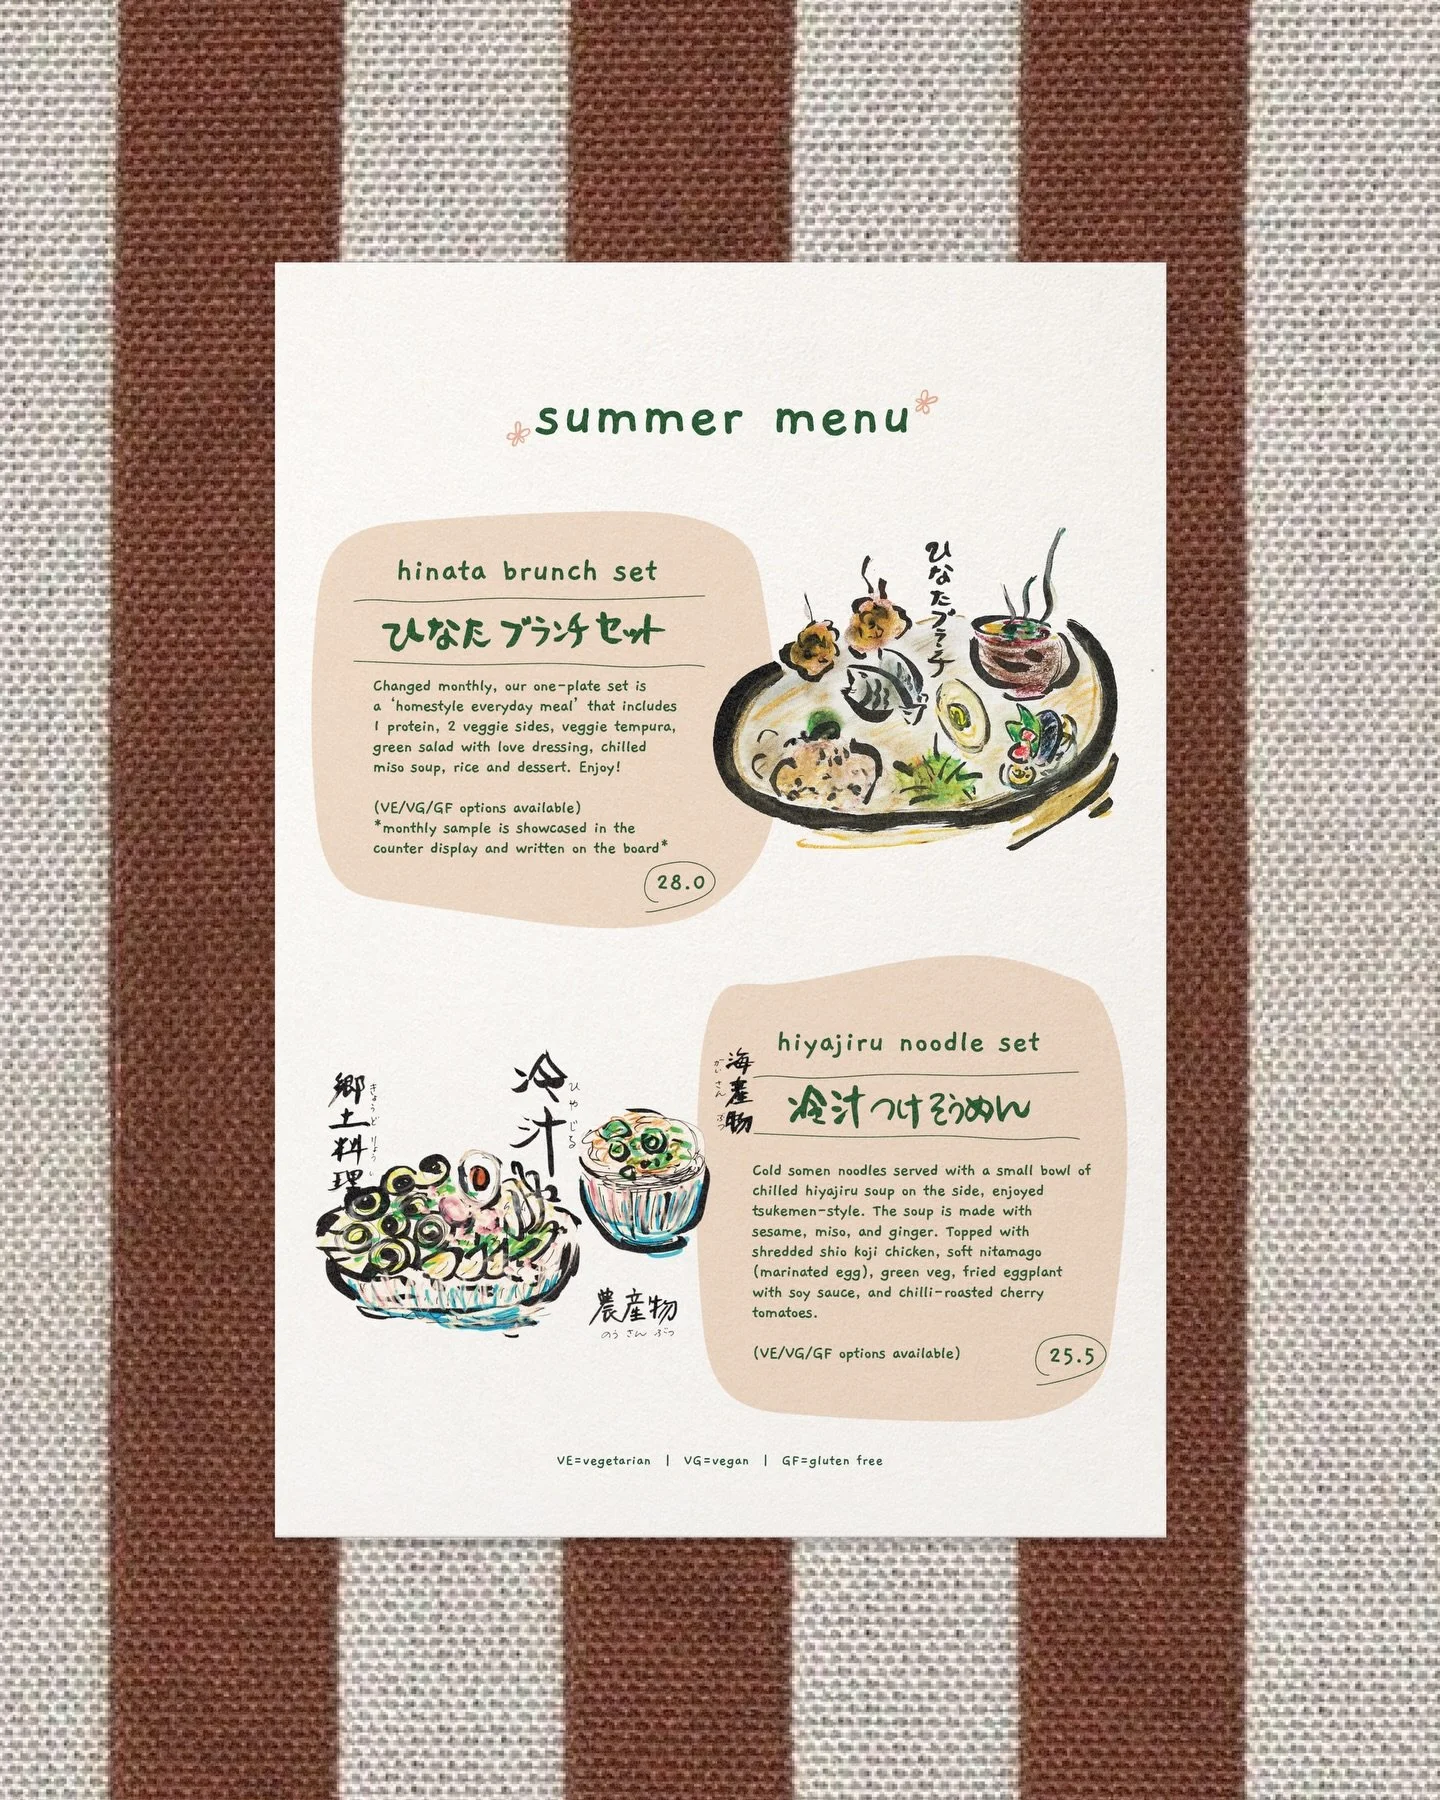 summer menu
hinata brunch set
ひなた ブランチ セット
Changed monthly, our one-plate set is
a 'homestyle everyday meal' that includes
1 protein, 2 veggie sides, veggie tempura,
green salad with love dressing, chilled
miso soup, rice and dessert. Enjoy!
(VE/VG/GF options available)
*monthly sample is showcased in the
counter display and written on the board*
28.0
ひなたブランチ
郷土料理
きょうど りょうり
冷汁
ひやじる
農産物
のうさんぶつ
海産物
かいさんぶつ
hiyajiru noodle set
冷汁つけそうめん
Cold somen noodles served with a small bowl of
chilled hiyajiru soup on the side, enjoyed
tsukemen-style. The soup is made with
sesame, miso, and ginger. Topped with
shredded shio koji chicken, soft nitamago
(marinated egg), green veg, fried eggplant
with soy sauce, and chilli-roasted cherry
tomatoes.
(VE/VG/GF options available)
25.5
VE=vegetarian | VG=vegan | GF=gluten free